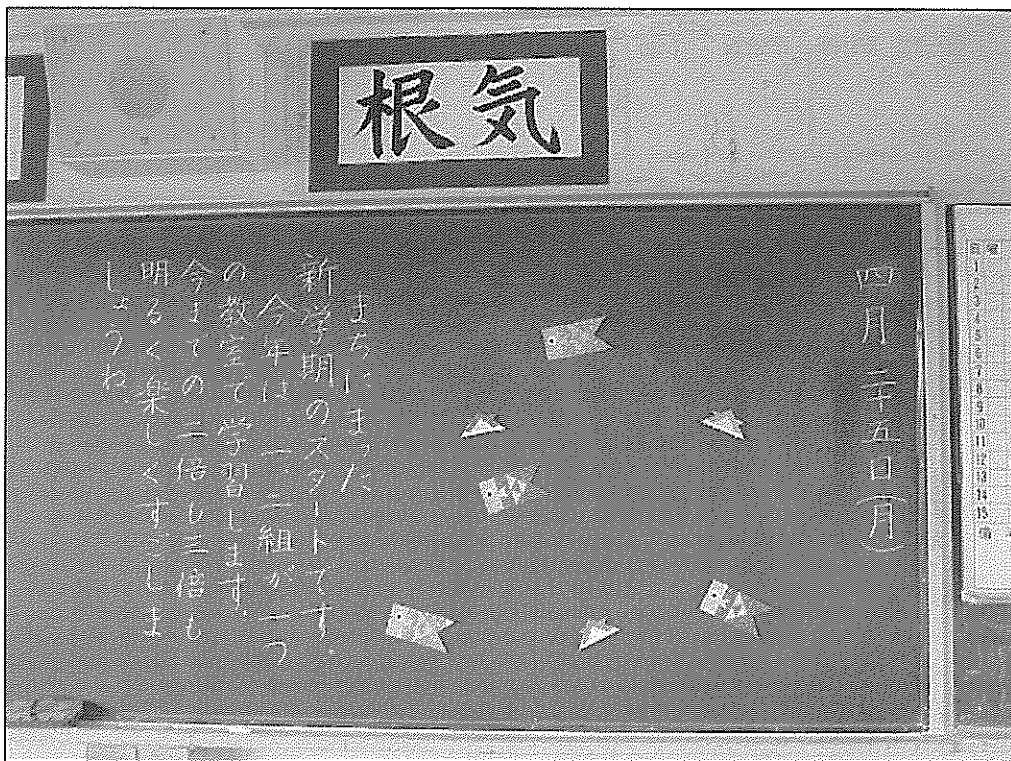 根気
四月二十五日(月)
まちにまった
新学期のスタートです。
今年は一、二組が一つ
の教室で学習します。
今までの一倍も二倍も
明るく楽しくすごしま
しょうね。
日 曜
1
2
3
4
5
6
7
8
9
10
11
12
13
14
15